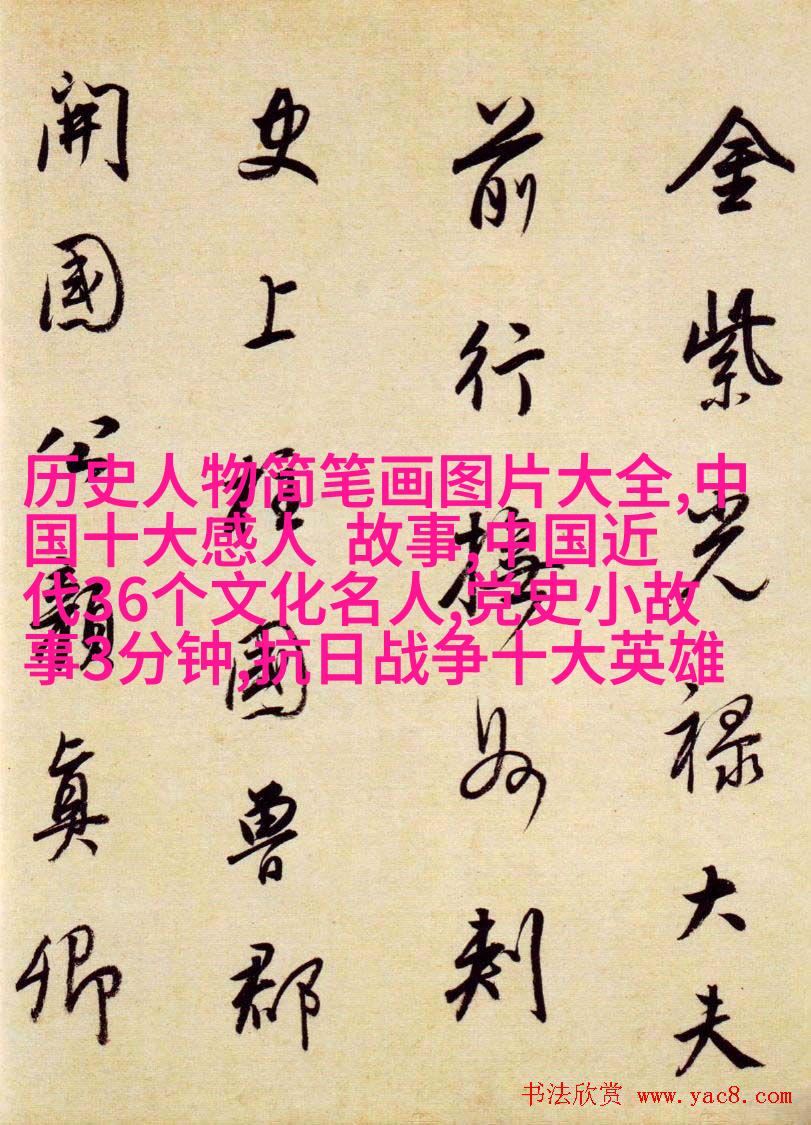 金紫光禄大夫
前行撫州刺
史上柱國魯郡
開國公顏真卿
历史人物简笔画图片大全,中
国十大感人 故事,中国近
代36个文化名人,党史小故
事3分钟,抗日战争十大英雄
书法欣赏 www.yac8.com